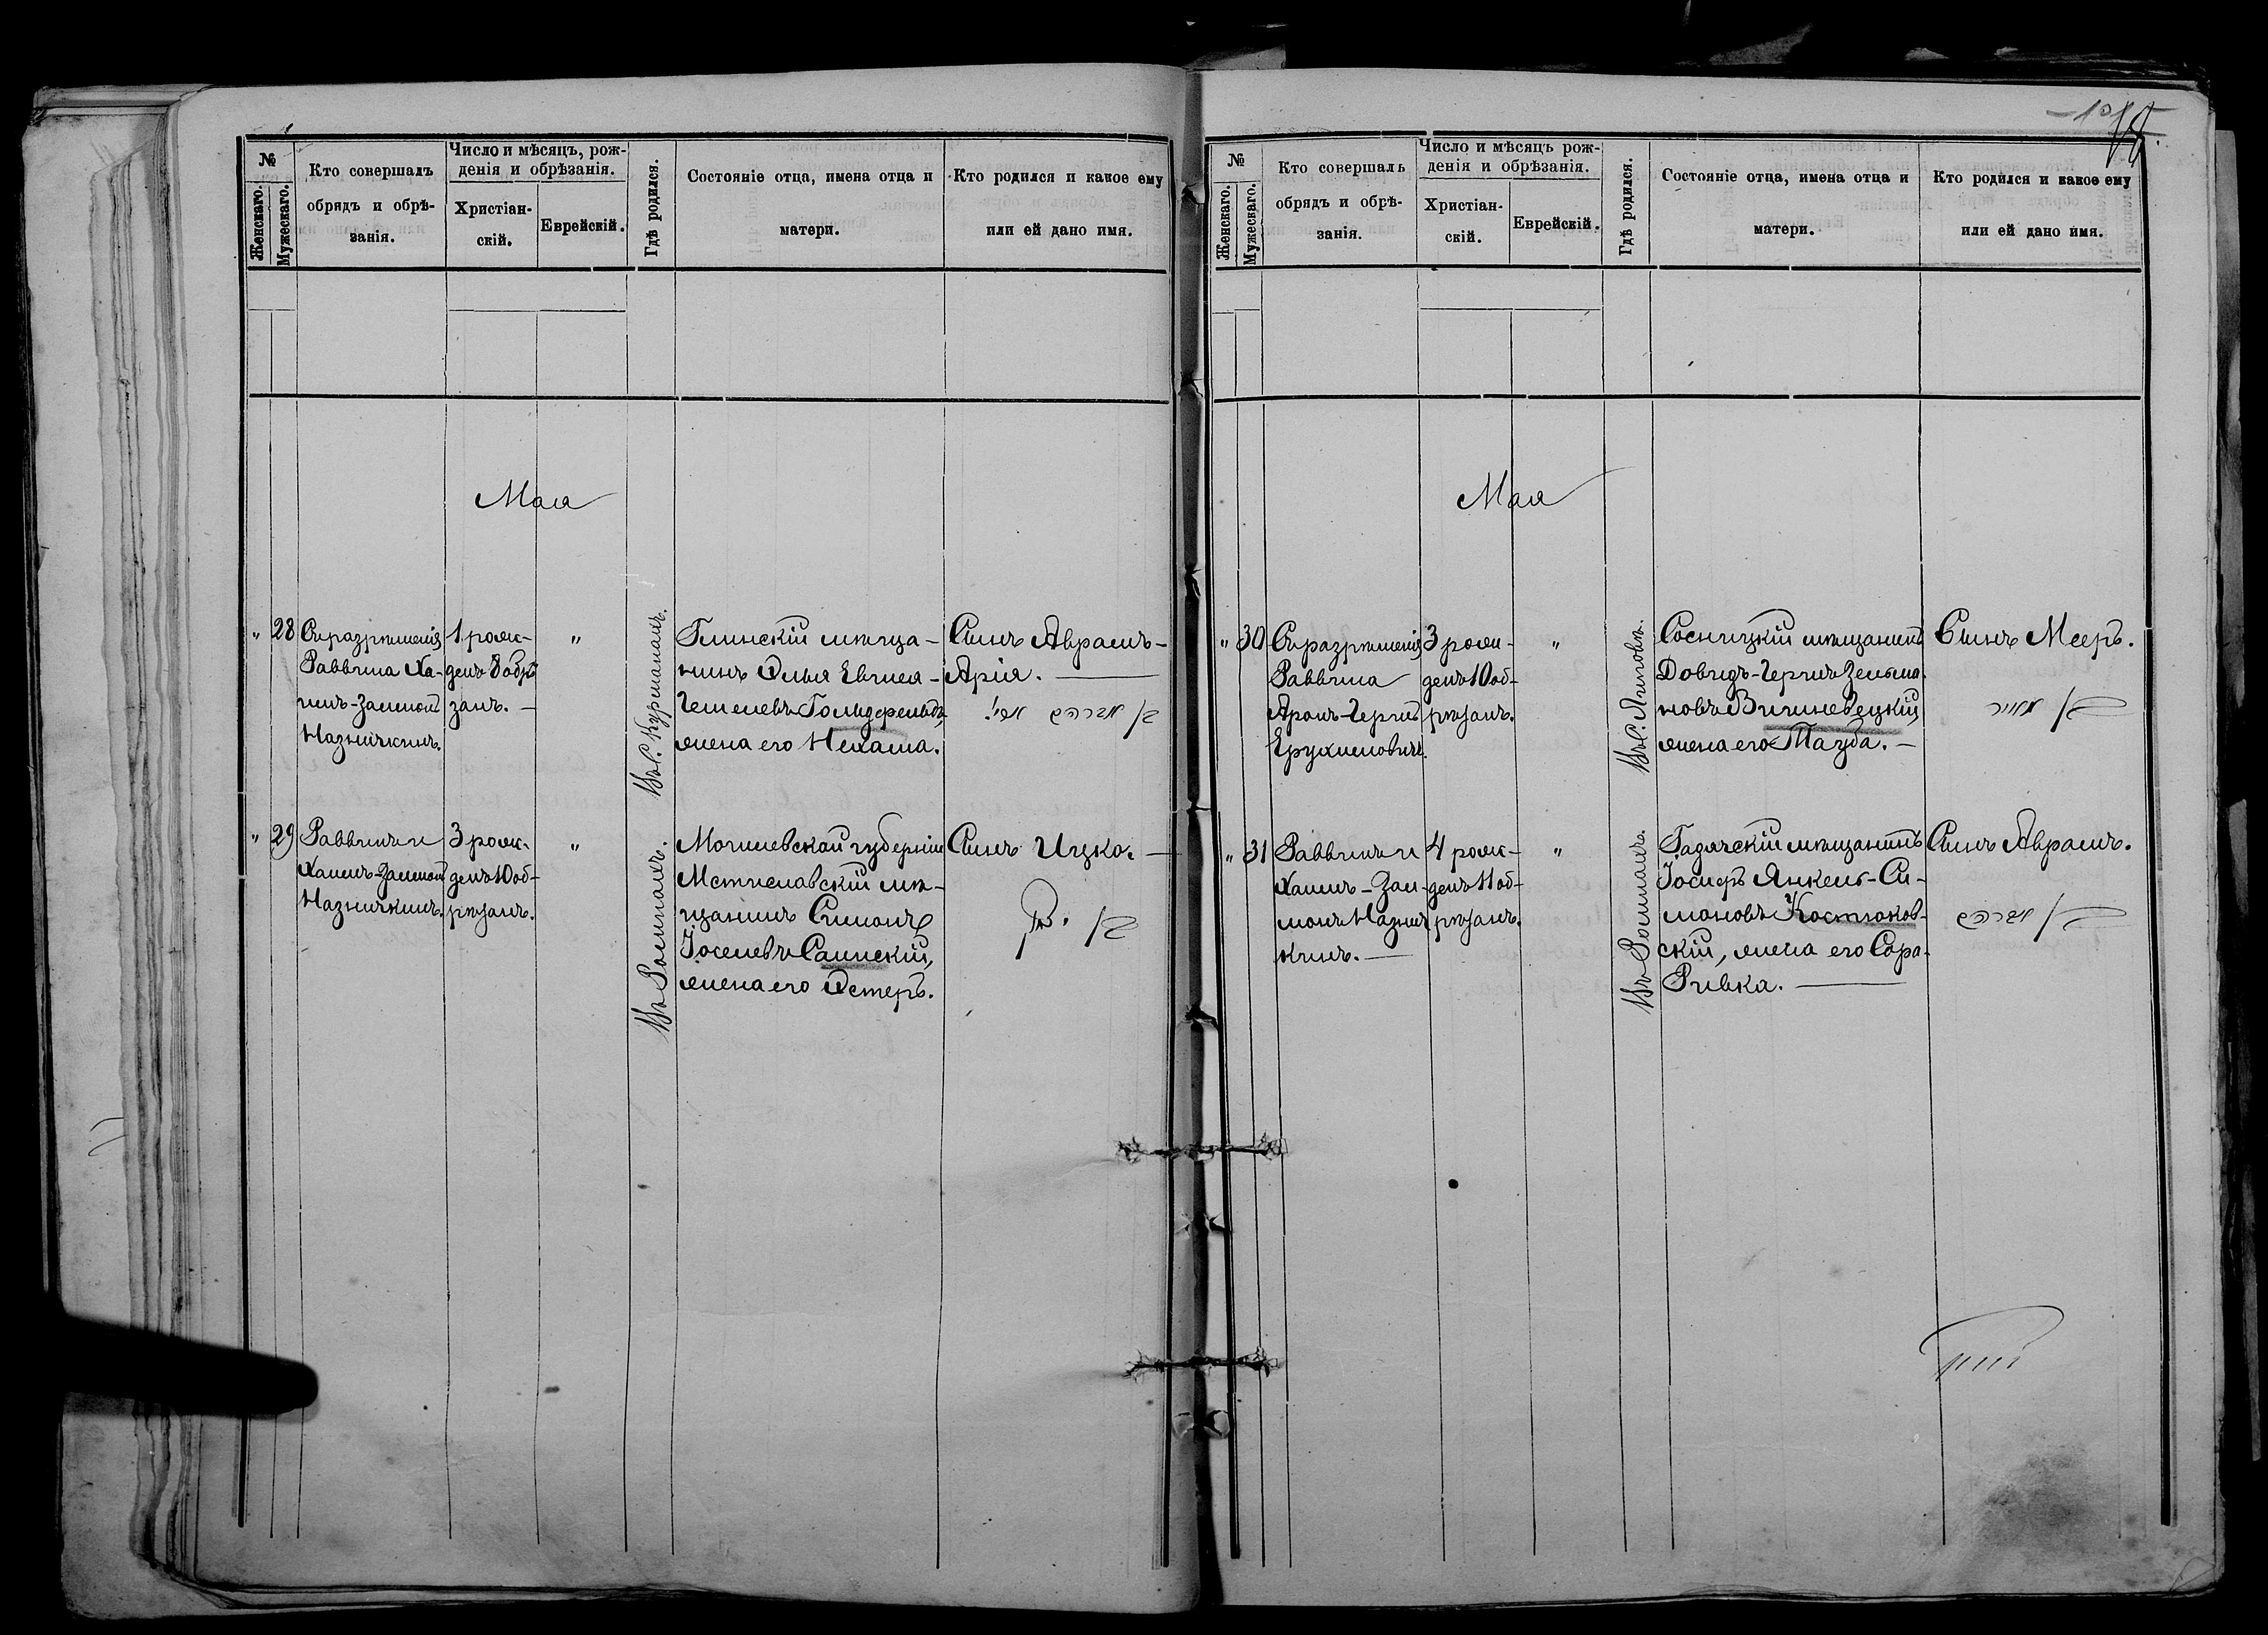 №
Женскаго.
Мужескаго.
Кто совершалъ
обрядъ и обрѣ-
занія.
Число и мѣсяцъ, рож-
денія и обрѣзанія.
Христіан-
скій.
Еврейскій.
Гдѣ родился.
Состояніе отца, имена отца и
матери.
Кто родился и какое ему
или ей дано имя.
Мая
" 28
Съ разрѣшенія
Раввина Ха-
имъ-Залмонъ
Назничкинъ.
1 рож-
денъ 8 обрѣ
занъ. —
"
Въ с. Курманахъ.
Глинскій мѣща-
нинъ Элья Евчиел-
Чешелевъ Гольдфельдъ
жена его Нехама.
Сынъ Аврамъ-
Арія. —
בן אברהם ארי'
" 29
Раввинъ и
Хаимъ-Залмонъ
Назничкинъ.
3 рож-
денъ 10 об-
рѣзанъ.
"
Въ Ромнахъ.
Могилевской губерніи
Мстиславскій мѣ-
щанинъ Симонъ
Іоселевъ Слинскій,
жена его Эстеръ.
Сынъ Ицко. —
בן יצחק
№
Женскаго.
Мужескаго.
Кто совершалъ
обрядъ и обрѣ-
занія.
Число и мѣсяцъ рож-
денія и обрѣзанія.
Христіан-
скій.
Еврейскій.
Гдѣ родился.
Состояніе отца, имена отца и
матери.
Кто родился и какое ему
или ей дано имя.
Мая
" 30
Съ разрѣшенія
Раввина
Аронъ-Герцъ
Ерухимовичъ.
3 рож-
денъ 10 об-
рѣзанъ.
"
Въ с. Липовѣ.
Сосницкій мѣщанинъ
Довидъ-Герцъ Зельма-
новъ Вишневецкій,
жена его Тауба. —
Сынъ Мееръ.
בן מאיר
" 31
Раввинъ и
Хаимъ-Зал-
монъ Назнич
кинъ. —
4 рож-
денъ 11 об-
рѣзанъ.
"
Въ Ромнахъ.
Гадячскій мѣщанинъ
Іосифъ Янкель-Си-
моновъ Костюков-
скій, жена его Сора-
Ривка. —
Сынъ Аврамъ.
בן אברהם